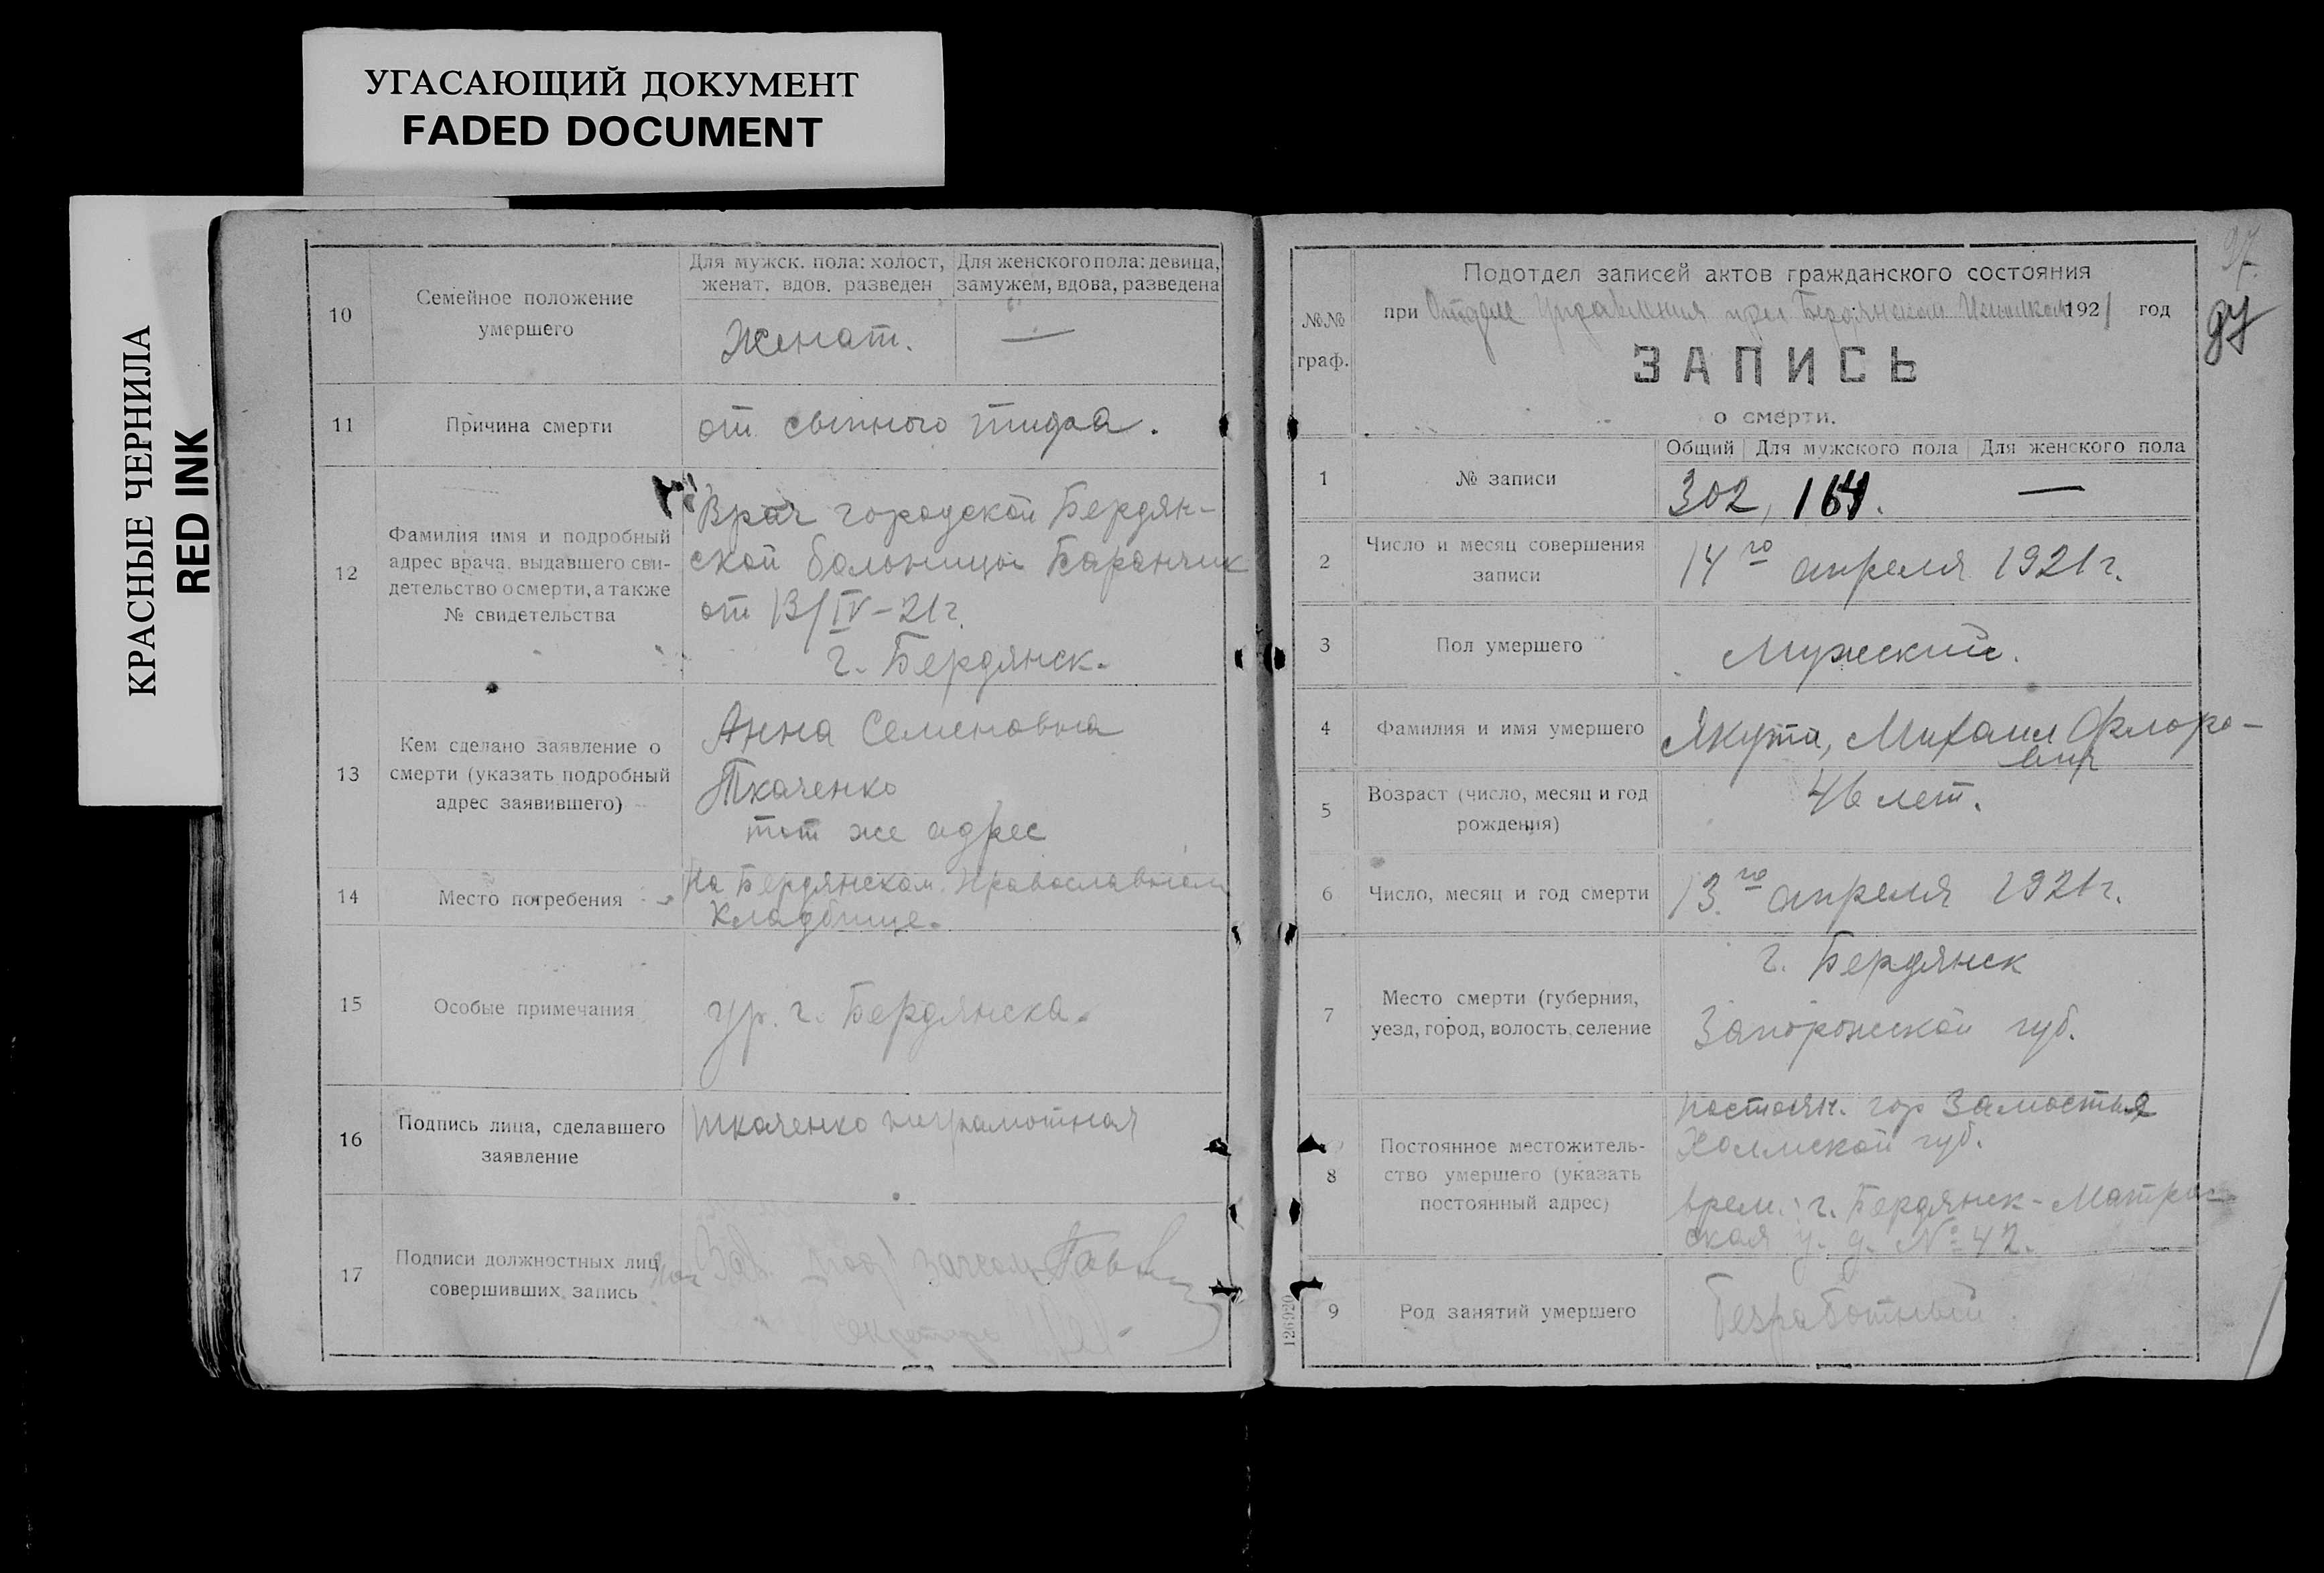 УГАСАЮЩИЙ ДОКУМЕНТ
FADED DOCUMENT
КРАСНЫЕ ЧЕРНИЛА
RED INK
10
Семейное положение
умершего
Для мужск. пола: холост,
женат, вдов. разведен
Для женского пола: девица,
замужем, вдова, разведена
Женат.
—
11
Причина смерти
от сыпного тифа.
12
Фамилия имя и подробный
адрес врача, выдавшего сви-
детельство о смерти, а также
№ свидетельства
Врач городской Бердян-
ской больницы Баранчик
от 13/IV-21г.
г. Бердянск.
13
Кем сделано заявление о
смерти (указать подробный
адрес заявившего)
Анна Семеновна
Ткаченко
тот же адрес
14
Место погребения
На Бердянском Православном
кладбище.
15
Особые примечания
ур. г. Бердянска.
16
Подпись лица, сделавшего
заявление
Ткаченко неграмотная
17
Подписи должностных лиц
совершивших запись
Зав.
97.
№№
граф.
Подотдел записей актов гражданского состояния
при Отделе Управления при Бердянском Исполкоме 1921 год
ЗАПИСЬ
о смерти.
1
№ записи
Общий
Для мужского пола
Для женского пола
302, 164. —
2
Число и месяц совершения
записи
14го апреля 1921г.
3
Пол умершего
Мужский.
4
Фамилия и имя умершего
Якута, Михаил Флоро-
вич
5
Возраст (число, месяц и год
рождения)
46 лет.
6
Число, месяц и год смерти
13.го апреля 1921г.
7
Место смерти (губерния,
уезд, город, волость, селение
г. Бердянск
Запорожской губ.
8
Постоянное местожитель-
ство умершего (указать
постоянный адрес)
постоян. гор Замостья
Холмской губ.
врем. г. Бердянск - Матрос-
ская у. д. № 42.
9
Род занятий умершего
Безработный
126920